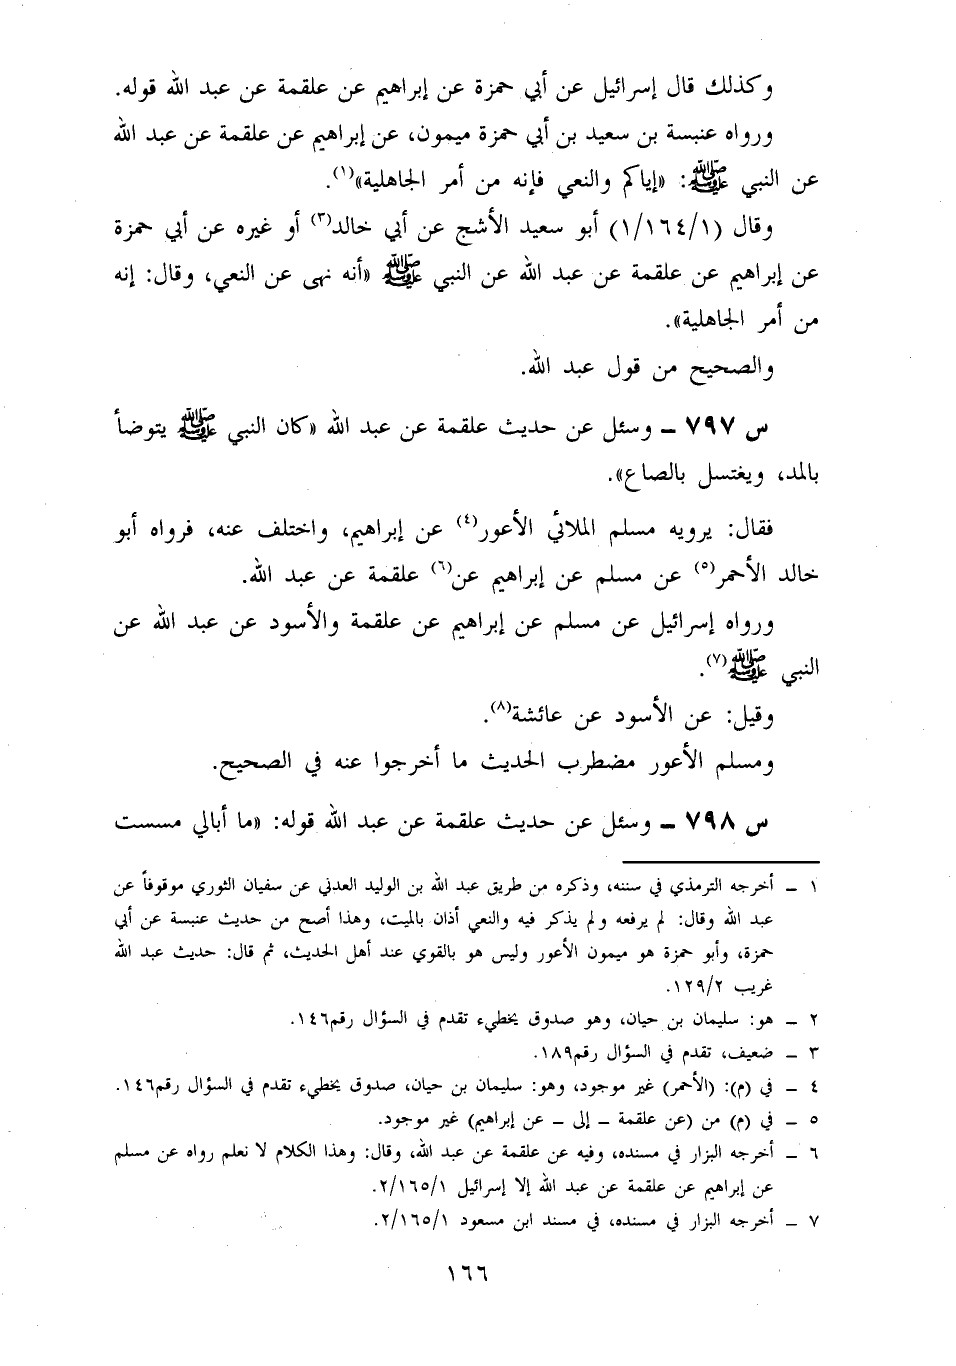 وكذلك قال إسرائيل عن أبي حمزة عن إبراهيم عن علقمة عن عبد الله قوله.
ورواه عنبسة بن سعيد بن أبي حمزة ميمون، عن إبراهيم عن علقمة عن عبد الله
عن النبي ﷺ: «إياكم والنعي فإنه من أمر الجاهلية»(١).
وقال (١/١٦٤/١) أبو سعيد الأشج عن أبي خالد(٣) أو غيره عن أبي حمزة
عن إبراهيم عن علقمة عن عبد الله عن النبي ﷺ «أنه نهى عن النعي، وقال: إنه
من أمر الجاهلية».
والصحيح من قول عبد الله.
س ٧٩٧ ـ وسئل عن حديث علقمة عن عبد الله «كان النبي ﷺ يتوضأ
بالمد، ويغتسل بالصاع».
فقال: يرويه مسلم الملائي الأعور(٤) عن إبراهيم، واختلف عنه، فرواه أبو
خالد الأحمر(٥) عن مسلم عن إبراهيم عن(٦) علقمة عن عبد الله.
ورواه إسرائيل عن مسلم عن إبراهيم عن علقمة والأسود عن عبد الله عن
النبي ﷺ(٧).
وقيل: عن الأسود عن عائشة(٨).
ومسلم الأعور مضطرب الحديث ما أخرجوا عنه في الصحيح.
س ٧٩٨ ـ وسئل عن حديث علقمة عن عبد الله قوله: «ما أبالي مسست
١ ـ أخرجه الترمذي في سننه، وذكره من طريق عبد الله بن الوليد العدني عن سفيان الثوري موقوفاً عن
عبد الله وقال: لم يرفعه ولم يذكر فيه والنعي أذان بالميت، وهذا أصح من حديث عنبسة عن أبي
حمزة، وأبو حمزة هو ميمون الأعور وليس هو بالقوي عند أهل الحديث، ثم قال: حديث عبد الله
غريب ١٢٩/٢.
٢ ـ هو: سليمان بن حيان، وهو صدوق يخطيء تقدم في السؤال رقم١٤٦.
٣ ـ ضعيف، تقدم في السؤال رقم١٨٩.
٤ ـ في (م): (الأحمر) غير موجود، وهو: سليمان بن حيان، صدوق يخطيء تقدم في السؤال رقم١٤٦.
٥ ـ في (م) من (عن علقمة ـ إلى ـ عن إبراهيم) غير موجود.
٦ ـ أخرجه البزار في مسنده، وفيه عن علقمة عن عبد الله، وقال: وهذا الكلام لا نعلم رواه عن مسلم
عن إبراهيم عن علقمة عن عبد الله إلا إسرائيل ٢/١٦٥/١.
٧ ـ أخرجه البزار في مسنده، في مسند ابن مسعود ٢/١٦٥/١.
١٦٦